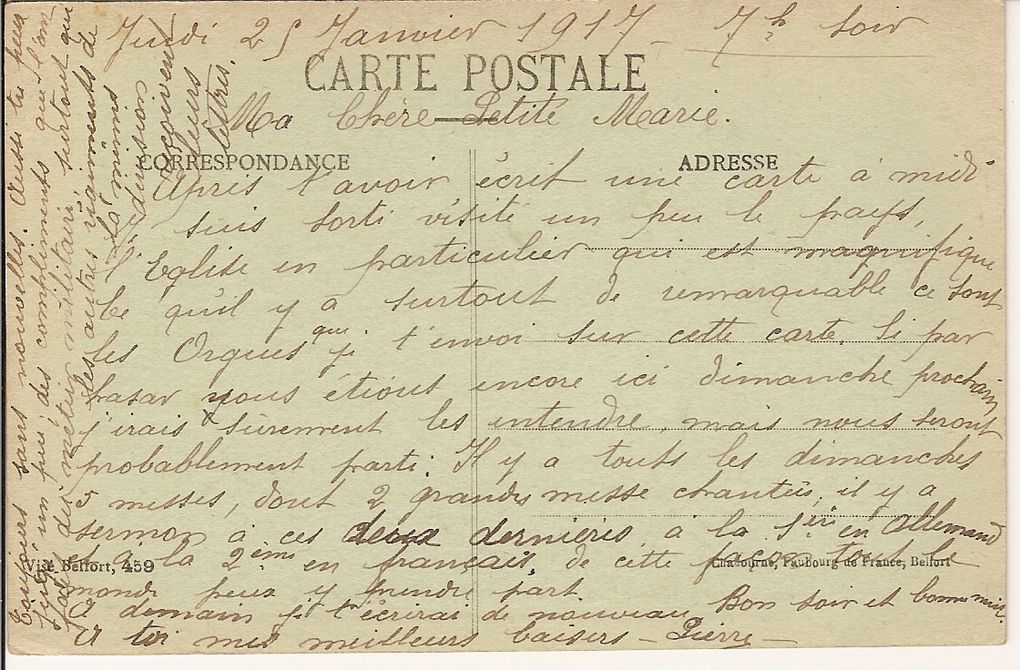 Jeudi 25 Janvier 1917 - 7h soir
CARTE POSTALE
Ma Chère Petite Marie.
CORRESPONDANCE
ADRESSE
Après t'avoir écrit une carte à midi
suis sorti visité un peu le pays,
l'Eglise en particulier qui est magnifique
Ce qu'il y a surtout de remarquable ce sont
les Orgues que je t'envoi sur cette carte. Si par
hasar nous étions encore ici dimanche prochain
j'irais sûrement les entendre, mais nous seront
probablement parti. Il y a touts les dimanches
5 messes, dont 2 grandes messe chantées, il y a
sermon à ces deux dernières à la 1ère en Allemand
et à la 2ème en français, de cette façon tout le
monde peux y prendre part.
A demain je t'écrirai de nouveau Bon soir et bonne nuit.
A toi mes meilleurs baisers - Pierre -
Visé, Belfort, 459
Chadourne, Faubourg de France, Belfort
Toujours sans nouvelles. Aussi tu peux
un peu des compliments que l'on
militaire surtout que
les autres régiments de
la même
division
reçoivent
leurs
lettres.